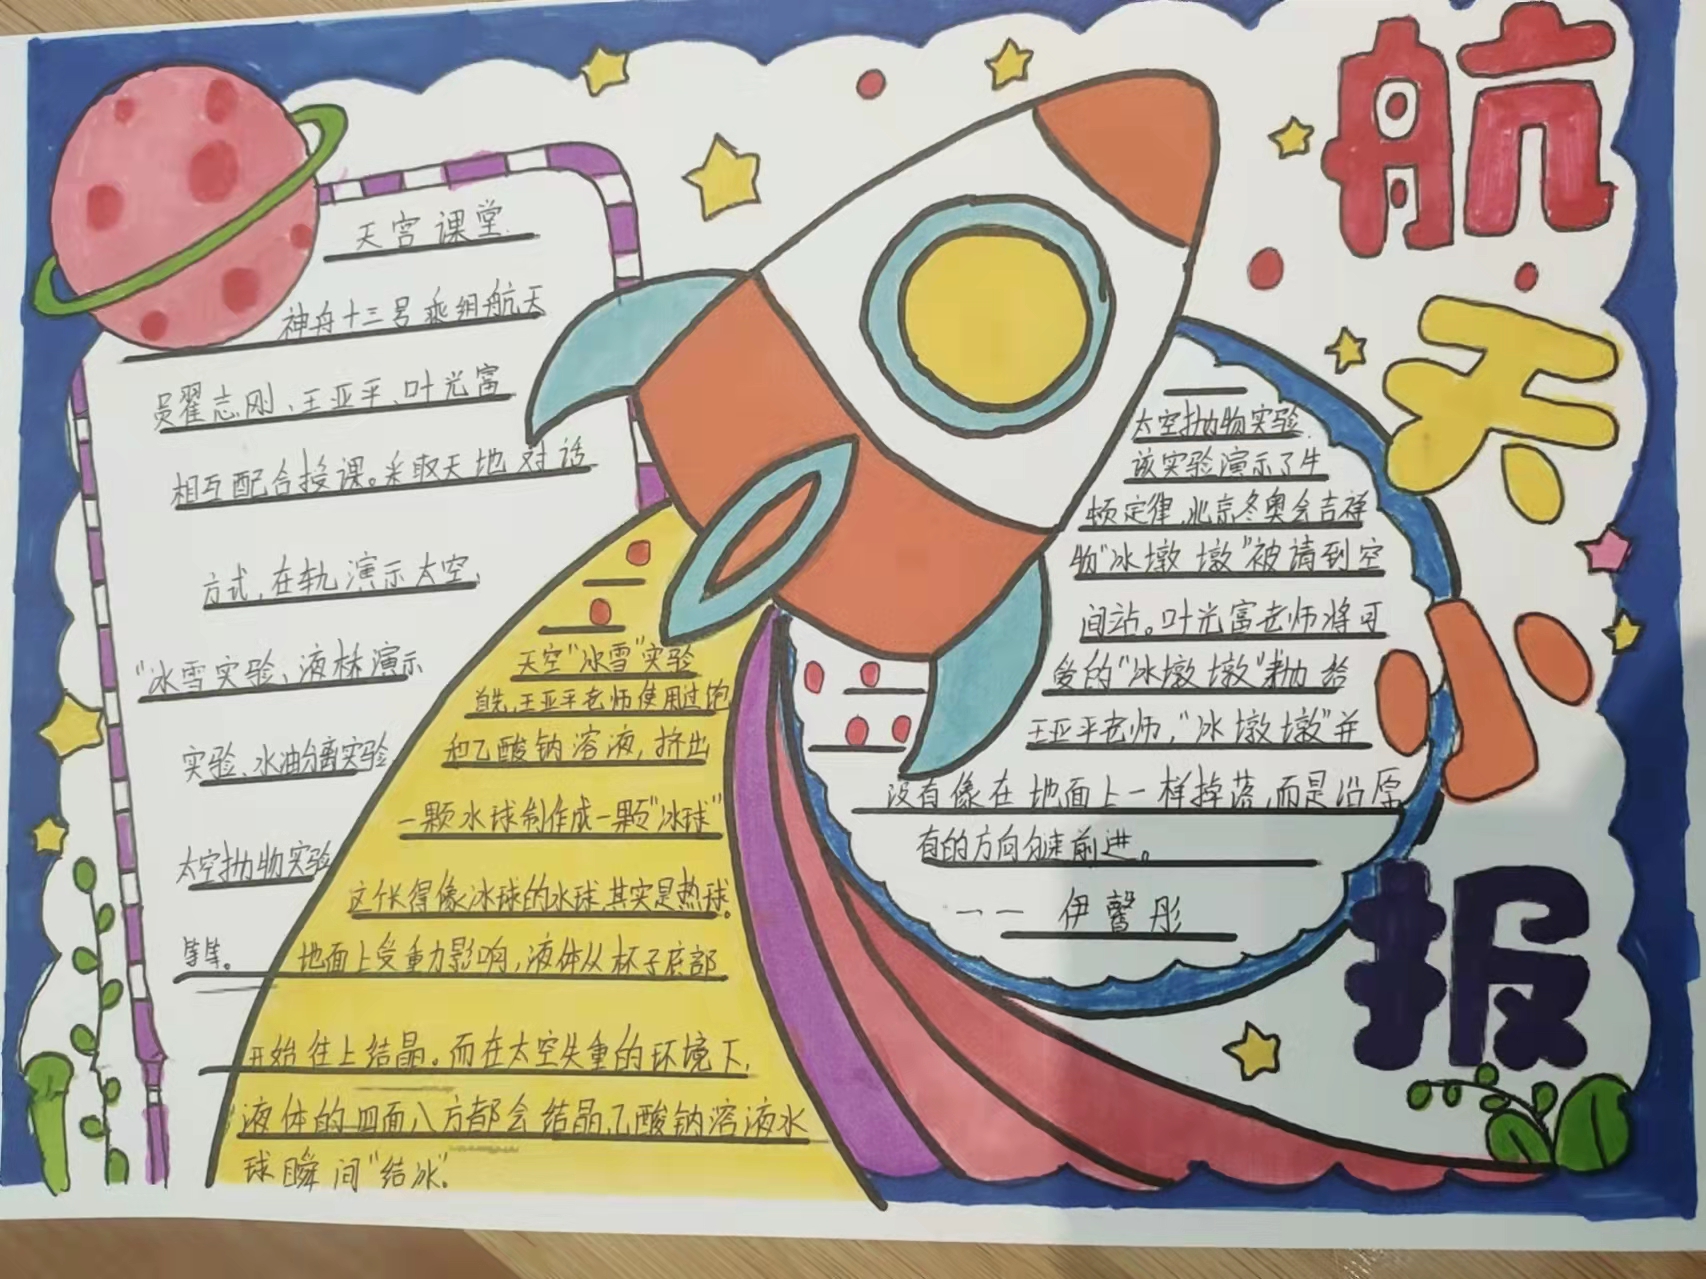 航天小报
天宫课堂
神舟十三号乘组航天
员翟志刚、王亚平、叶光富
相互配合授课。采取天地对话
方式，在轨演示太空
“冰雪实验、液桥演示
实验、水油分离实验
太空抛物实验
等等。
天空“冰雪”实验
首先，王亚平老师使用过饱
和乙酸钠溶液，挤出
一颗水球制作成一颗“冰球”
这个长得像冰球的水球，其实是热球。
地面上受重力影响，液体从杯子底部
开始往上结晶。而在太空失重的环境下，
液体的四面八方都会结晶，乙酸钠溶液水
球瞬间“结冰”。
太空抛物实验
该实验演示了牛
顿定律，北京冬奥会吉祥
物“冰墩墩”被请到空
间站。叶光富老师将可
爱的“冰墩墩”抛给
王亚平老师，“冰墩墩”并
没有像在地面上一样掉落，而是沿原
有的方向继续前进。
一一 伊馨彤